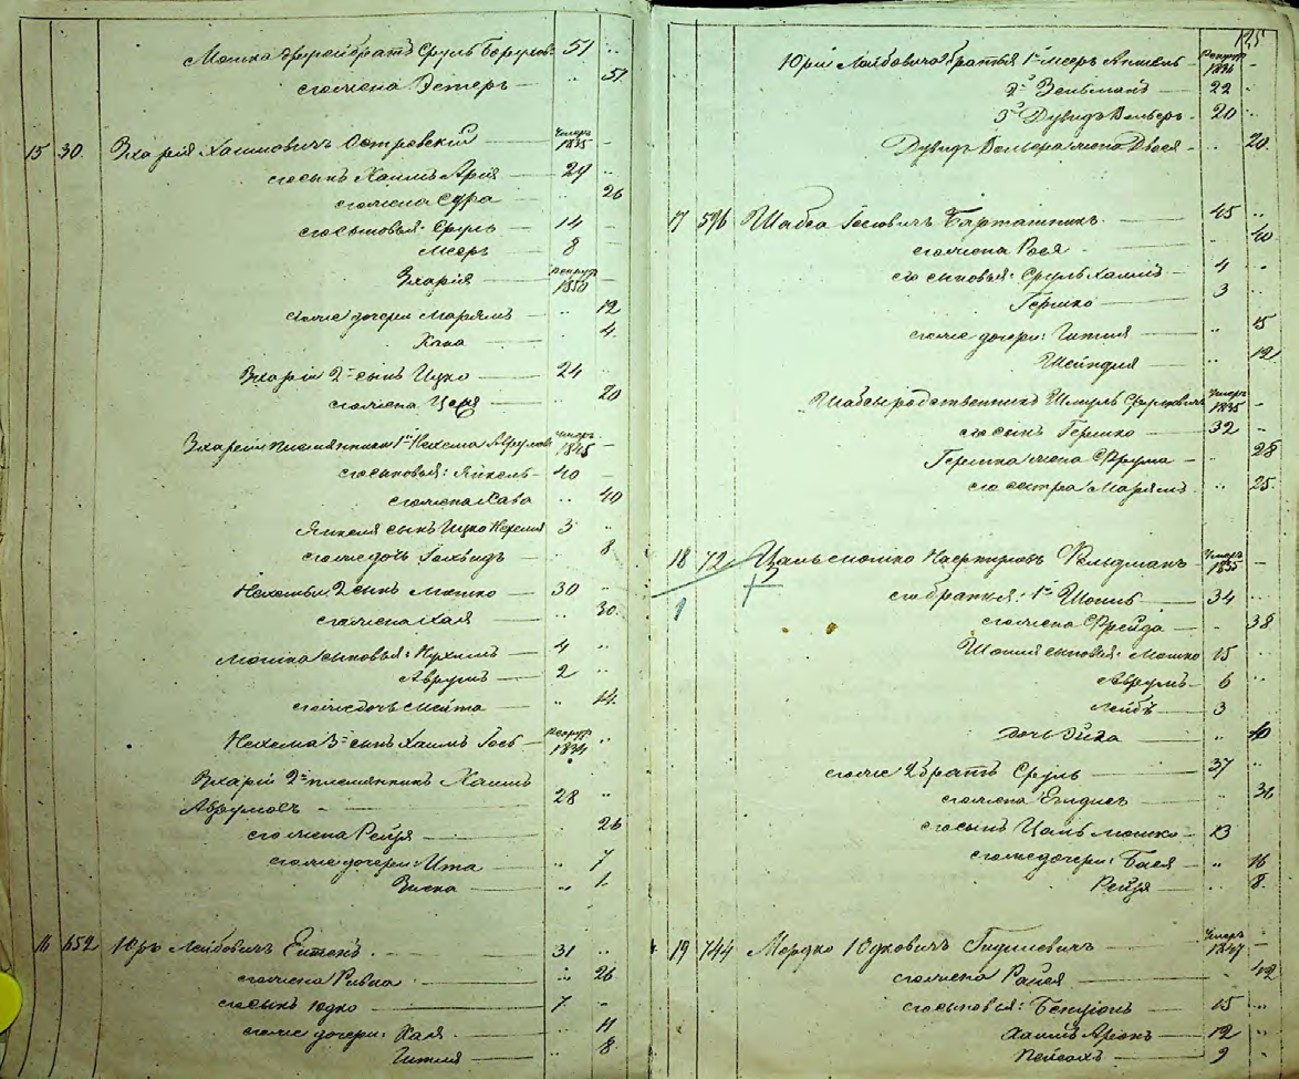 Мошка другой брат Сруль Борухов. 51 "
его жена Эстеръ — " 51
15 30. Зхарія Хаимовичъ Островскій — умеръ 1835 —
его сынъ Хаимъ Арія — 29 "
его жена Сура — " 26
его сыновья: Сруль — 14 —
Мееръ — 8 "
Зхарія — рекрут. 1850 —
его же дочери Марьямъ — " 12
Хана — " 4
Зхарія 2й сынъ Ицко — 24 "
его жена Цера — " 20
Зхаріи племянники 1й Нехема Аврумовъ умеръ 1845 —
его сыновья: Янкель — 40 —
его жена Хава " 40
Янкеля сынъ Ицко Нехемія 3 "
его же дочь — " 8
Нехемьи 2 сынъ Мошко — 30 "
его жена Хая " 30.
Мошка сыновья: Нухимъ — 4 "
Аврумъ — 2 "
его же дочь Мейта — " 14.
Нехема 3й сынъ Хаимъ Госъ — рекрут. 1834 "
Зхаріи 2й племянникъ Хаимъ
Аврумовъ — 28 "
его жена Рейзя — " 26
его же дочери: Ита — " 7
Зиска — " 1.
16 652 Юрь Лейбовичъ — 31 "
его жена Ривка — " 26
его сынъ Юдко — 7 "
его же дочери: Хая — " 11
Гитля — " 8
125
Юрія Лейбовича братья 1й Меер — рекрут. 1836 —
2й Зельманъ — 22 "
3й Дувидъ Вольфъ — 20 "
Дувидъ Вольфа жена Двося — " 20
17 596 Шабса 45 "
его жена Рося — " 40
его сыновья: Сруль Хаимъ — 4 "
Гершко — 3 "
его же дочери: Гитля — " 15
Шейндля — " 12
Шабсы родственникъ Шмуль умеръ 1835 —
его сынъ Гершко — 32 "
Гершка жена Фрума — " 28
его сестра Марьямъ " 25.
18 72 Цаль Мошко Фельдманъ умеръ 1835 —
его братья: 1й Шоилъ — 34 "
его жена Фрейда — " 38
Шоиля сыновья: Мошко 15 "
Аврумъ — 6 "
Лейбъ — 3
дочь — " 10
его же 2 братъ Сруль — 37 "
его жена — " 36
его сынъ Цаль Мошко — 13
его же дочери: Бася — " 16
Рейзя — " 8.
1
19 744 Мордко Юдковичъ — умеръ 1847 —
его жена — " 42
его сыновья: Бенціонъ — 15 "
Хаимъ Аронъ — 12 "
Пейсахъ — 9 "